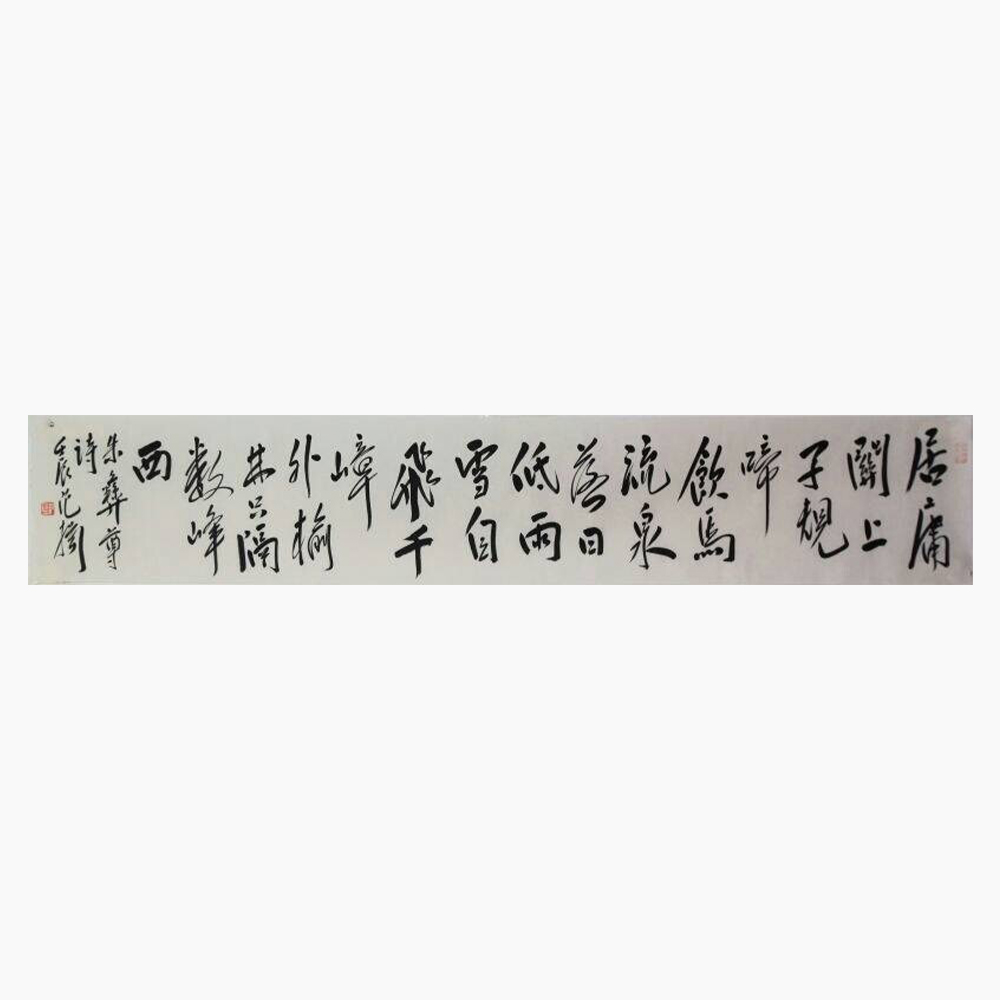 居庸
關上
子規
啼
飲馬
流泉
落日
低雨
雪自
飛千
嶂
外榆
林只隔
数峰
西
朱彝尊
詩
壬辰范